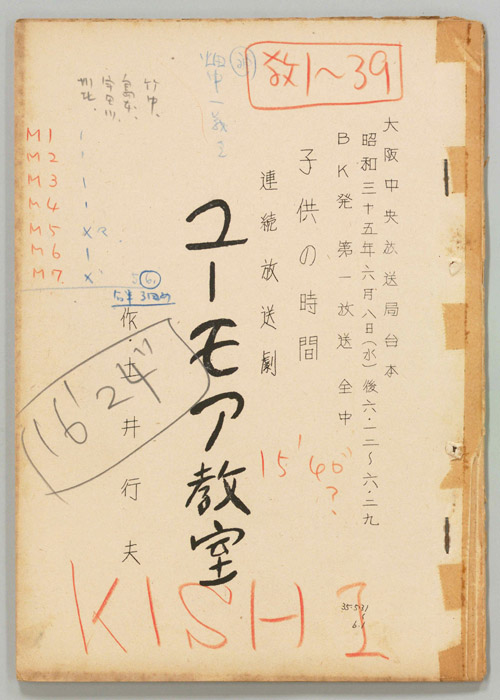 教1〜39
大阪中央放送局台本
昭和三十五年六月八日(水)後六・一二〜六・二九
BK発第一放送全中
子供の時間
連続放送劇
ユーモア教室
作・土井行夫
畑中一義
竹中、
M1
M2
M3
M4
M5 X
M6
M7 X
16'24"
15'40"
?
35.5.31
6.1
KISHI